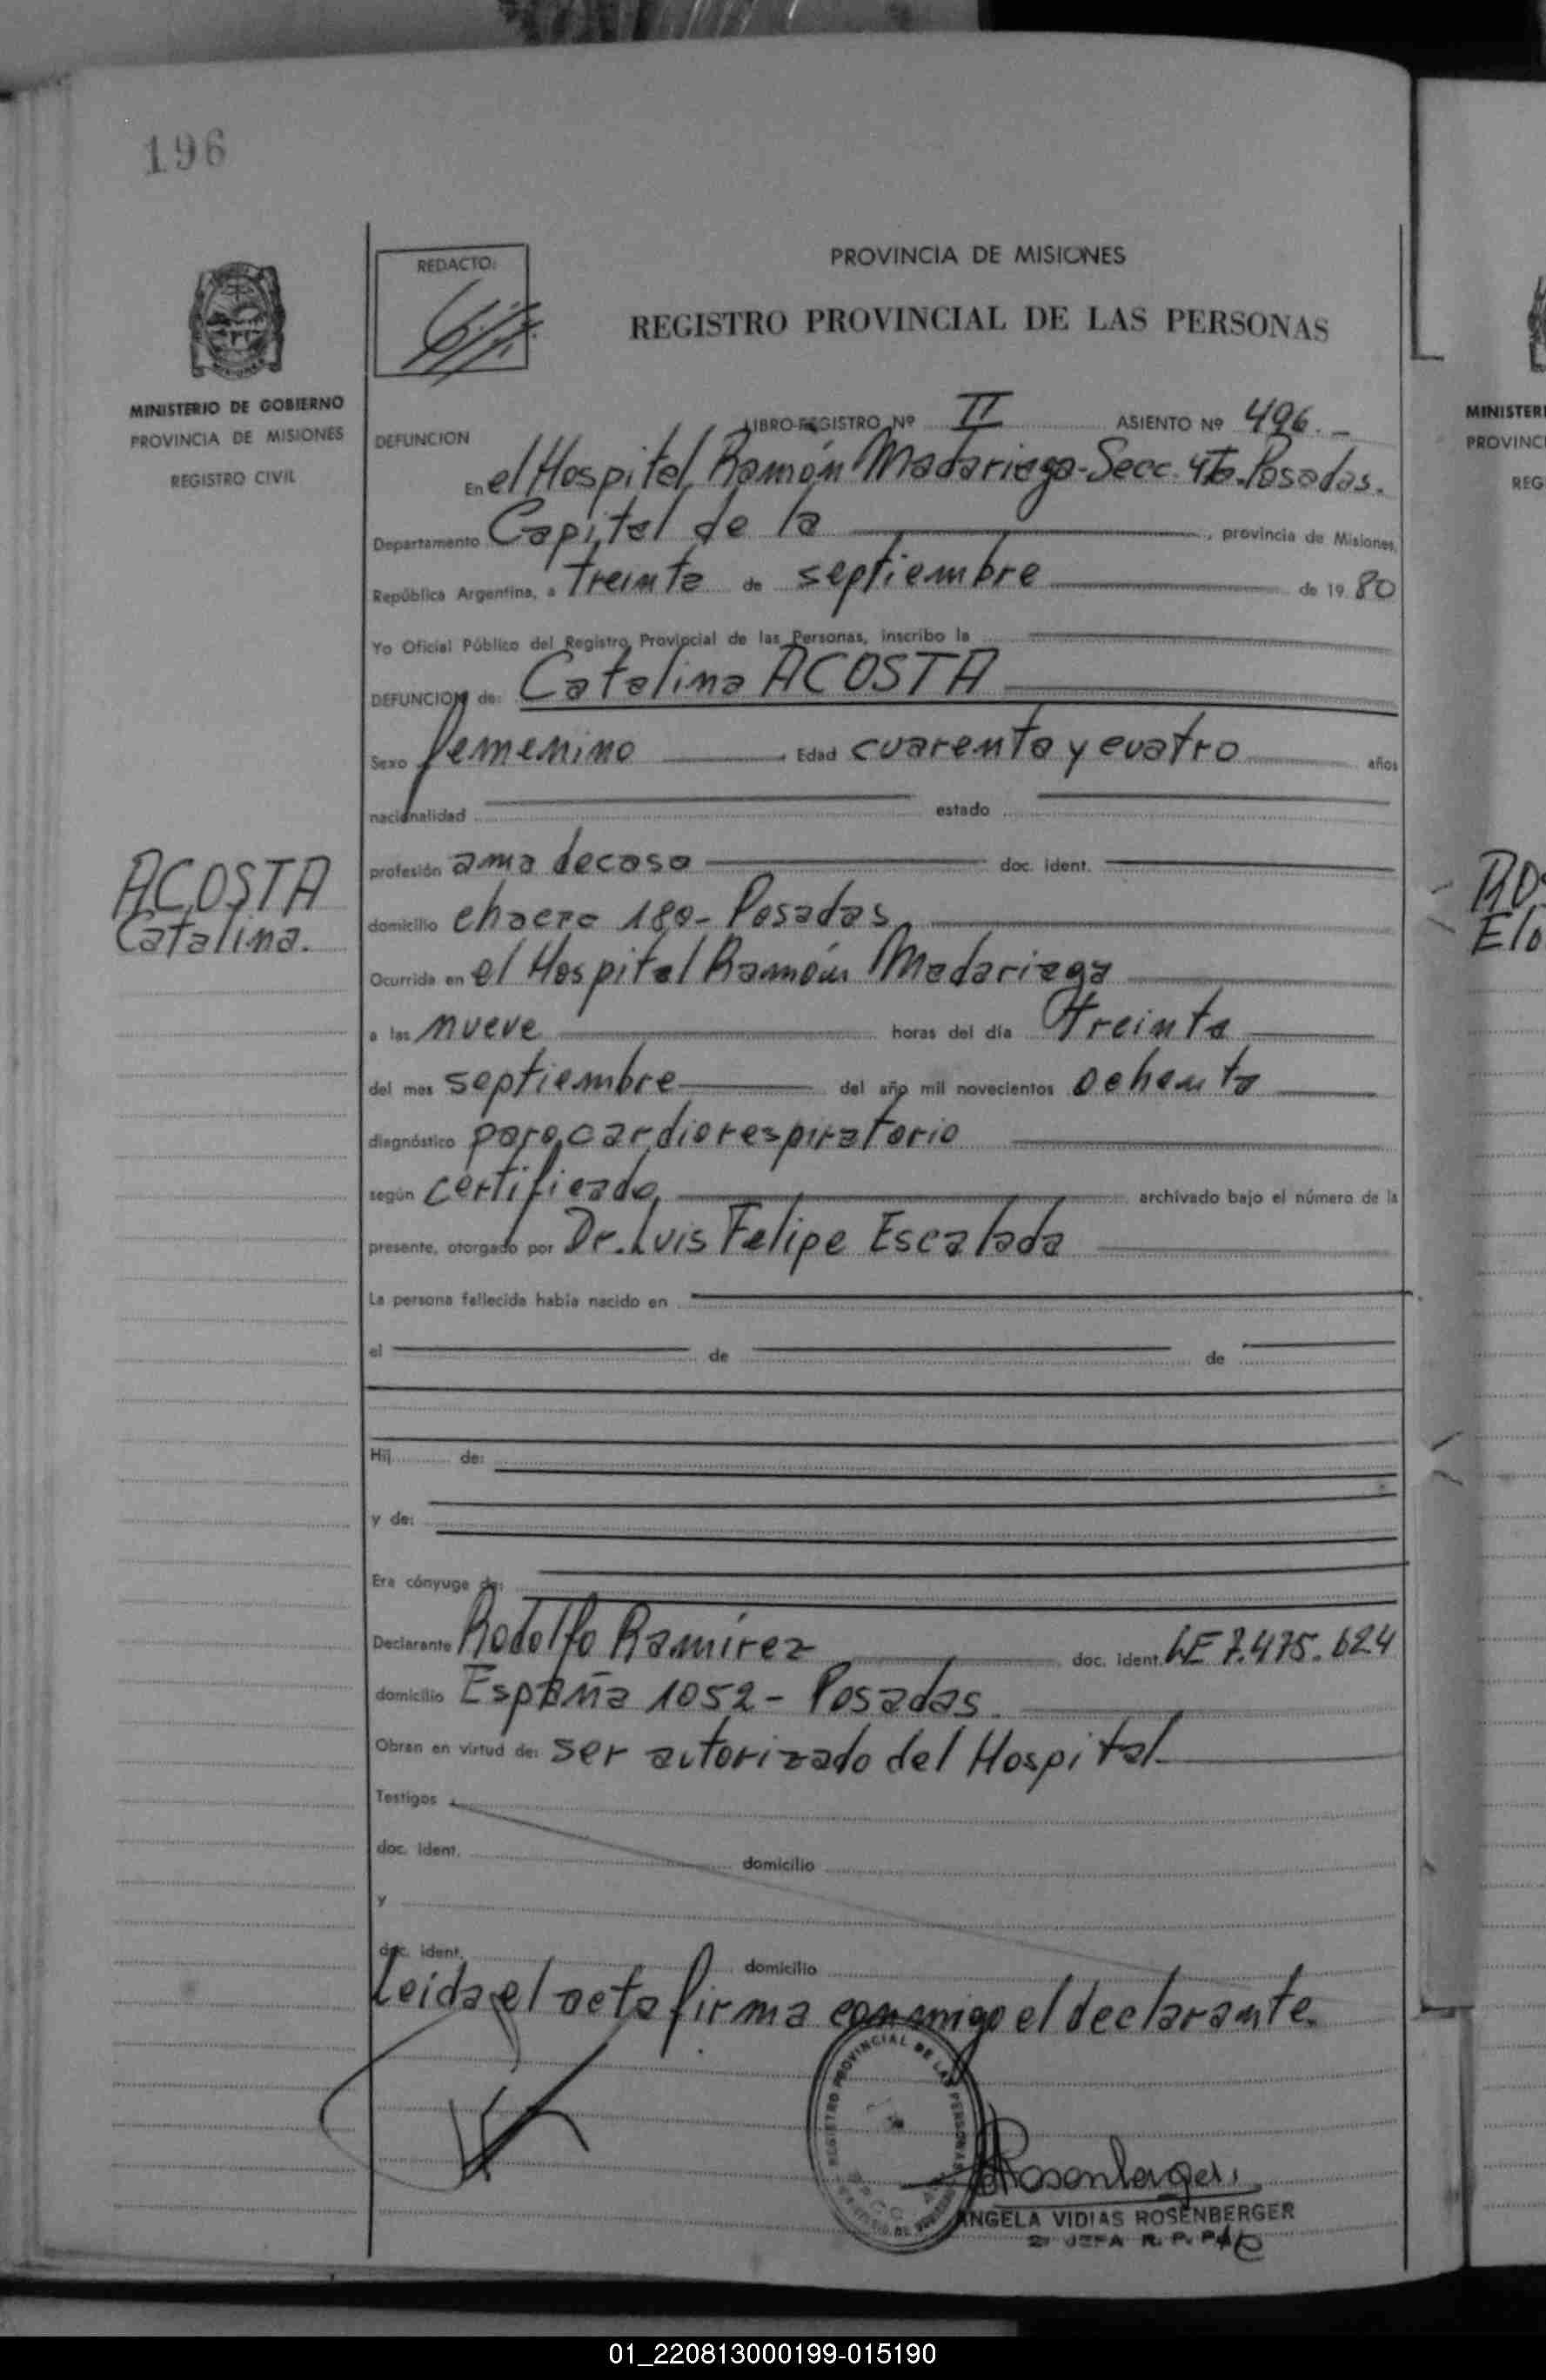 196
PROVINCIA DE MISIONES
REDACTO:
REGISTRO PROVINCIAL DE LAS PERSONAS
MINISTERIO DE GOBIERNO
PROVINCIA DE MISIONES
REGISTRO CIVIL
LIBRO-REGISTRO Nº II ASIENTO Nº 496.-
DEFUNCION
En el Hospital Ramón Madariaga-Secc. 4ta. Posadas.
Departamento Capital de la , provincia de Misiones,
República Argentina, a treinta de septiembre de 1980
Yo Oficial Público del Registro Provincial de las Personas, inscribo la
DEFUNCION de: Catalina ACOSTA
Sexo femenino Edad cuarenta y cuatro años
nacionalidad estado
ACOSTA
Catalina.
profesión ama de casa doc. ident.
domicilio chacra 180- Posadas
Ocurrida en el Hospital Ramón Madariaga
a las nueve horas del día treinta
del mes septiembre del año mil novecientos ochenta
diagnóstico paro cardiorespiratorio
según certificado archivado bajo el número de la
presente, otorgado por Dr. Luis Felipe Escalada
La persona fallecida había nacido en
el de de
Hij de:
y de:
Era cónyuge de:
Declarante Rodolfo Ramírez doc. ident. LE 7.475.624
domicilio España 1052- Posadas.
Obran en virtud de: ser autorizado del Hospital
Testigos
doc. ident. domicilio
y
doc. ident. domicilio
Leida el acta firma conmigo el declarante.
REGISTRO PROVINCIAL DE LAS PERSONAS
Rosenberger
ANGELA VIDIAS ROSENBERGER
2º JEFA R. P. P.
MINISTER
PROVINC
REG
01_220813000199-015190